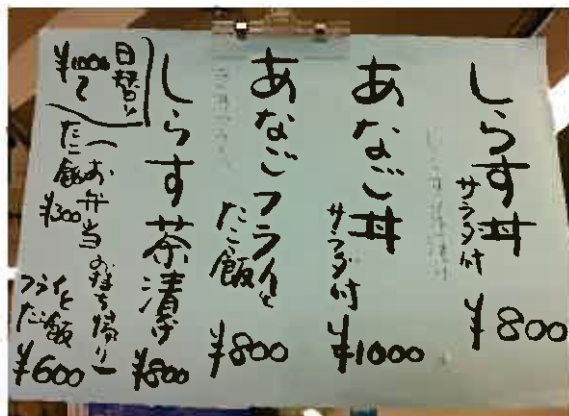 しらす丼
サラダ付
¥800
あなご丼
サラダ付
¥1000
あなごフライと
たこ飯
¥800
しらす茶漬け
¥800
日替り
¥1000
〜
ーお弁当お持ち帰りー
たこ飯
¥300
フライと
たこ飯
¥600